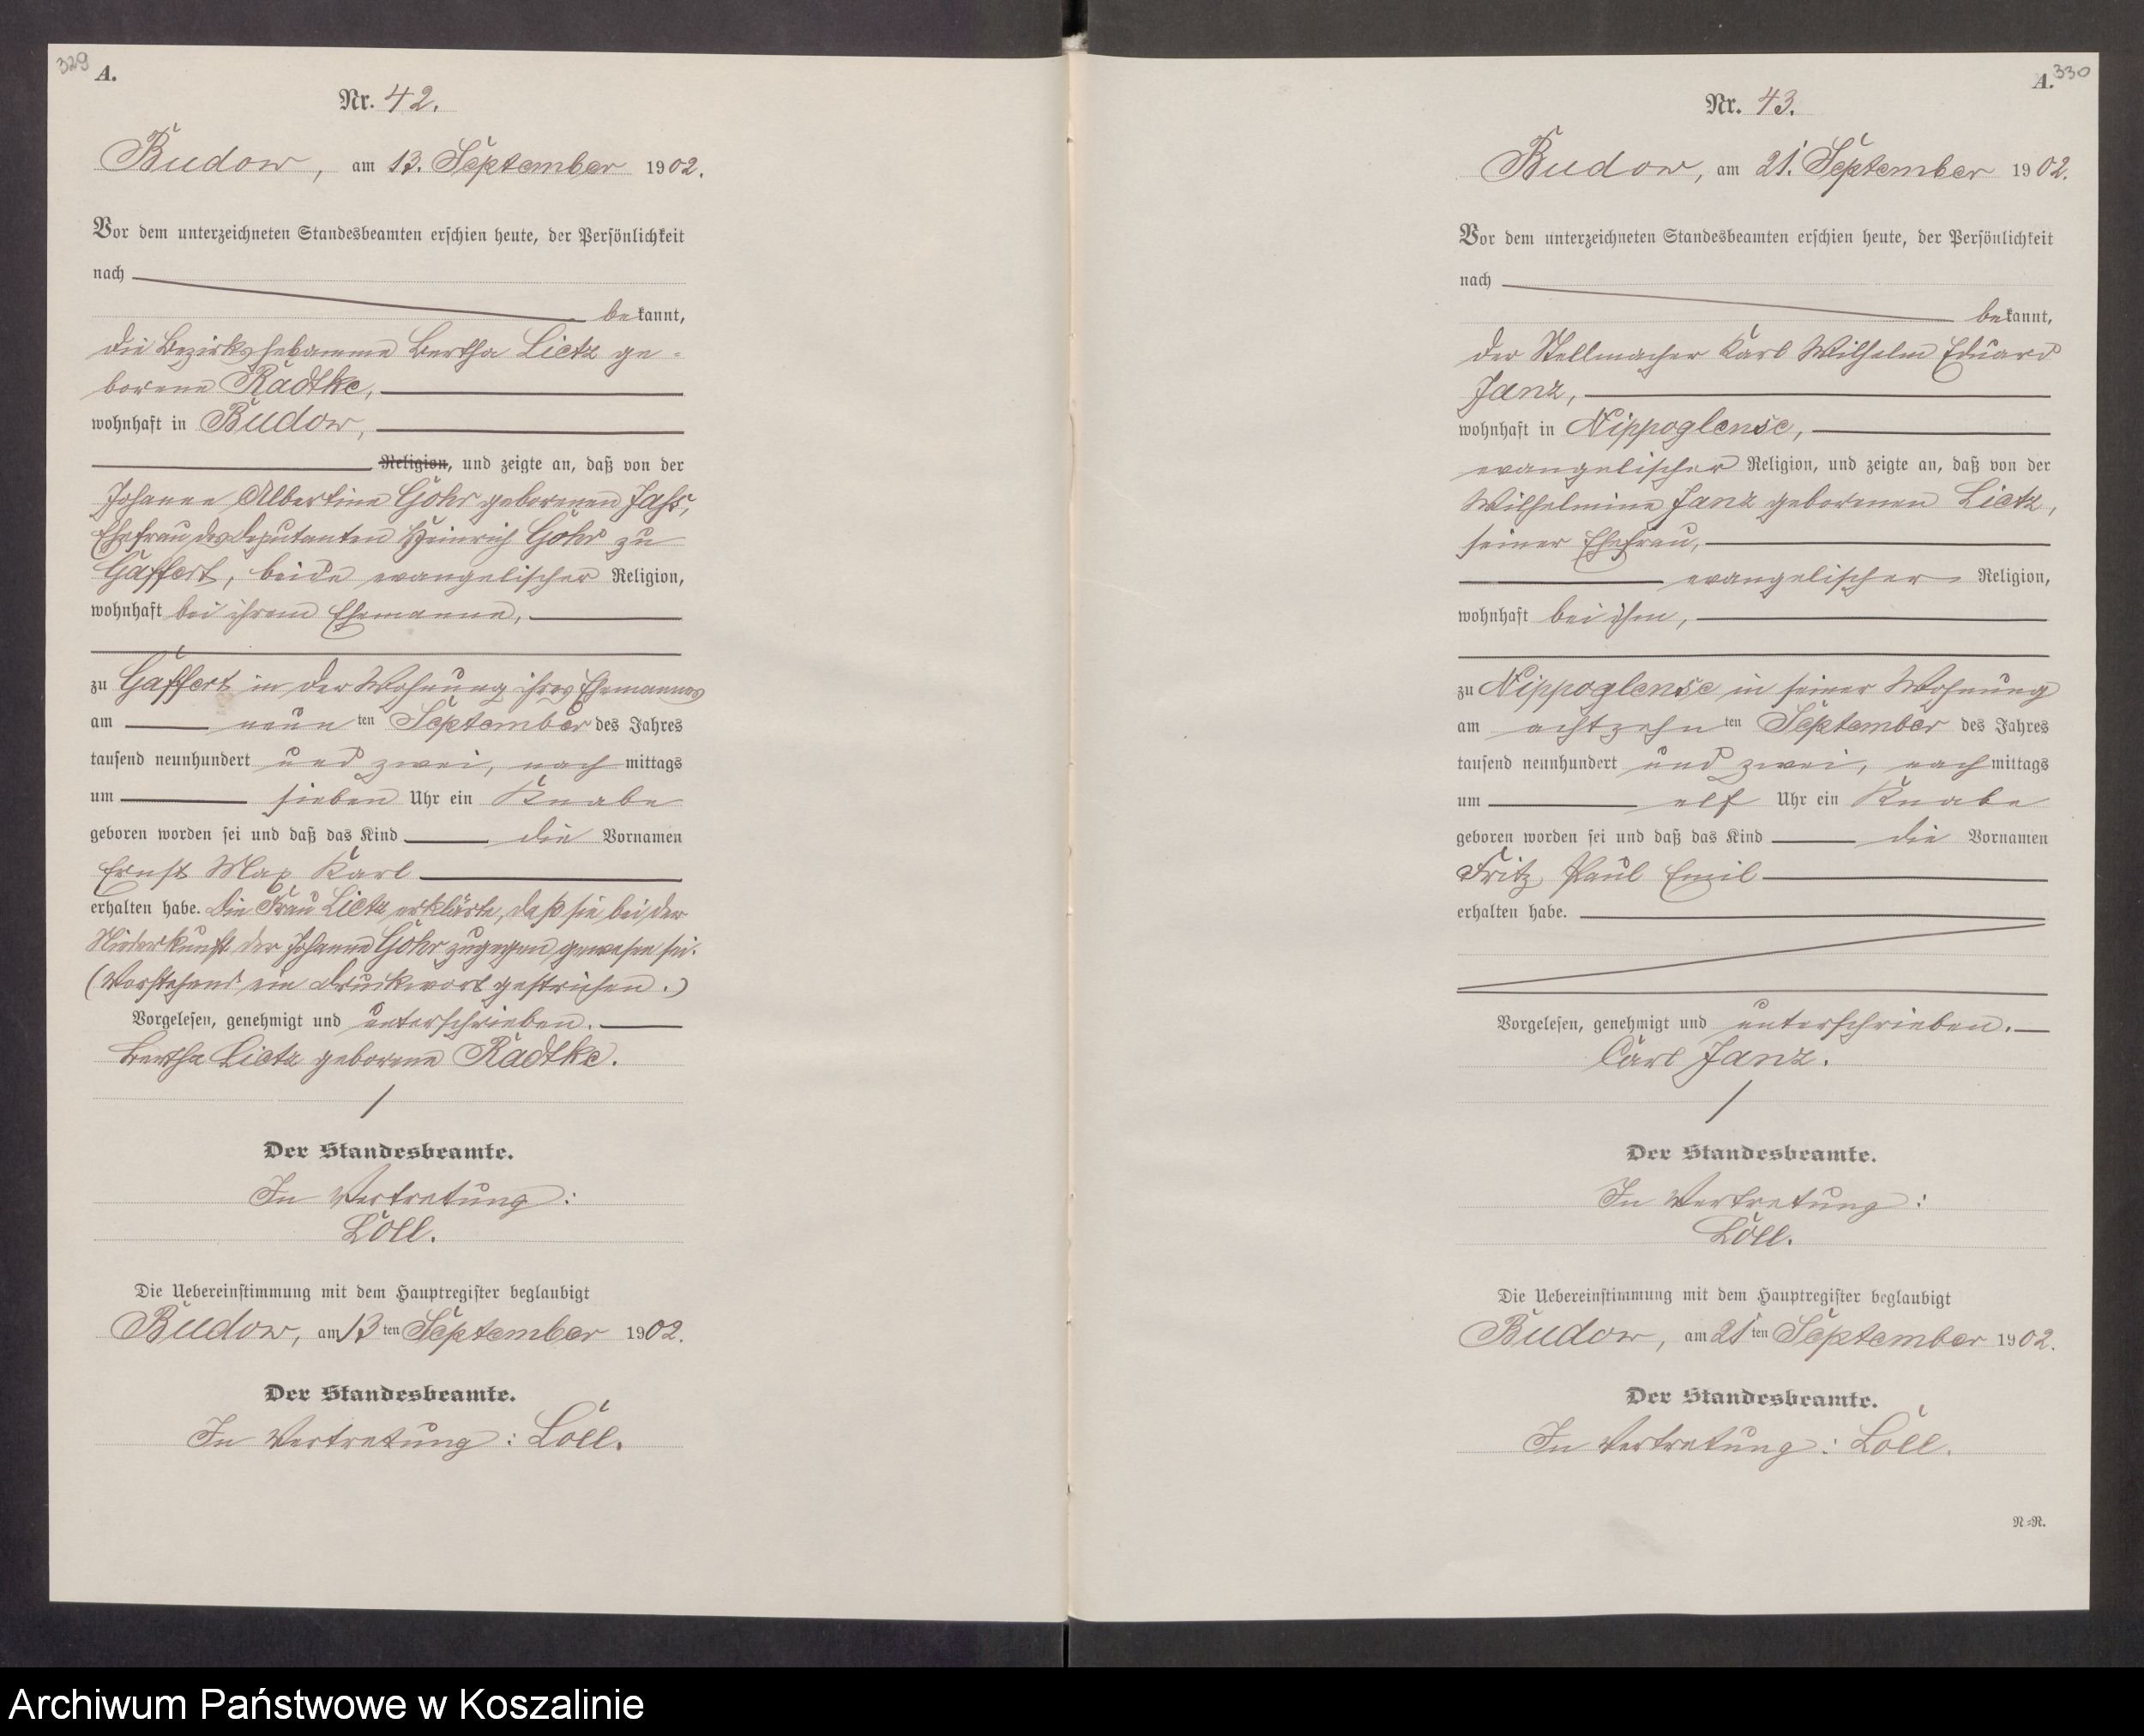 329
A.
Nr. 42.
Budow, am 13. September 1902.
Vor dem unterzeichneten Standesbeamten erschien heute, der Persönlichkeit
nach
bekannt,
die Bezirkshebamme Bertha Lietz ge-
borene Radtke,
wohnhaft in Budow,
Religion, und zeigte an, daß von der
Johanne Albertine Gohr geborenen Jahs,
Ehefrau des Deputanten Heinrich Gohr zu
Gaffert, beide evangelischer Religion,
wohnhaft bei ihrem Ehemanne,
zu Gaffert in der Wohnung ihres Ehemannes
am neunten September des Jahres
tausend neunhundert und zwei, nachmittags
um sieben Uhr ein Knabe
geboren worden sei und daß das Kind die Vornamen
Ernst Max Karl
erhalten habe. Die Frau Lietz erklärte, daß sie bei der
Niederkunft der Johanne Gohr zugegen gewesen sei.
(Vorstehend ein Druckwort gestrichen.)
Vorgelesen, genehmigt und unterschrieben.
Bertha Lietz geborene Radtke.
Der Standesbeamte.
In Vertretung:
Löll.
Die Uebereinstimmung mit dem Hauptregister beglaubigt
Budow, am 13ten September 1902.
Der Standesbeamte.
In Vertretung: Löll.
A. 330
Nr. 43.
Budow, am 21. September 1902.
Vor dem unterzeichneten Standesbeamten erschien heute, der Persönlichkeit
nach
bekannt,
der Stellmacher Karl Wilhelm Eduard
Janz,
wohnhaft in Nippoglense,
evangelischer Religion, und zeigte an, daß von der
Wilhelmine Janz geborenen Lietz,
seiner Ehefrau,
evangelischer Religion,
wohnhaft bei ihm,
zu Nippoglense in seiner Wohnung
am achtzehnten September des Jahres
tausend neunhundert und zwei, nachmittags
um elf Uhr ein Knabe
geboren worden sei und daß das Kind die Vornamen
Fritz Paul Emil
erhalten habe.
Vorgelesen, genehmigt und unterschrieben.
Carl Janz.
Der Standesbeamte.
In Vertretung:
Löll.
Die Uebereinstimmung mit dem Hauptregister beglaubigt
Budow, am 21ten September 1902.
Der Standesbeamte.
In Vertretung: Löll.
N=R.
Archiwum Państwowe w Koszalinie